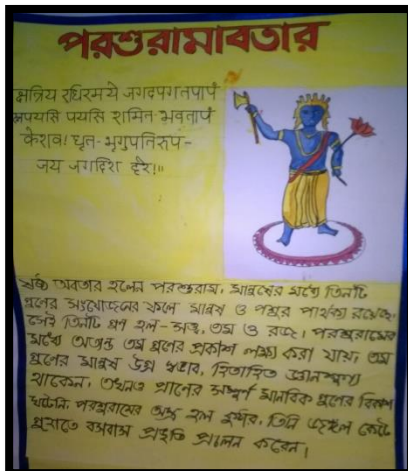 পরশুরামাবতার
ক্ষত্রিয় রুধিরময়ে জগদপগতপাপং
স্নপয়সি পয়সি শমিত ভবতাপং
কেশব! ধৃত-ভৃগুপতিরূপ-
জয় জগদীশ হরে॥
ষষ্ঠ অবতার হলেন পরশুরাম, মানুষের মধ্যে তিনটি
গুণের সংযোজনের ফলে মানুষ ও পশুর পার্থক্য রয়েছে,
সেই তিনটি গুণ হল- সত্ত্ব, তম ও রজ। পরশুরামের
মধ্যে অত্যন্ত তম গুণের প্রকাশ লক্ষ্য করা যায়, তম
গুণের মানুষ উগ্র স্বভাব, হিতাহিত জ্ঞানশূন্য
থাকেন, তখনও প্রাণের সম্পূর্ণ মানবিক গুণের বিকাশ
ঘটেনি, পরশুরামের অস্ত্র হল কুঠার, তিনি জঙ্গল কেটে
বসবাস প্রকৃতি পালন করেন।